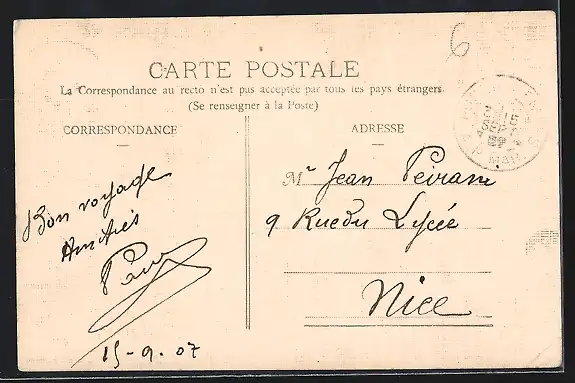 6
CARTE POSTALE
La Correspondance au recto n'est pas acceptée par tous les pays étrangers
(Se renseigner à la Poste)
CORRESPONDANCE
Bon voyage
Amitiés
15-9-07
ADRESSE
Mr Jean Peirani
9 Rue du Lycée
Nice